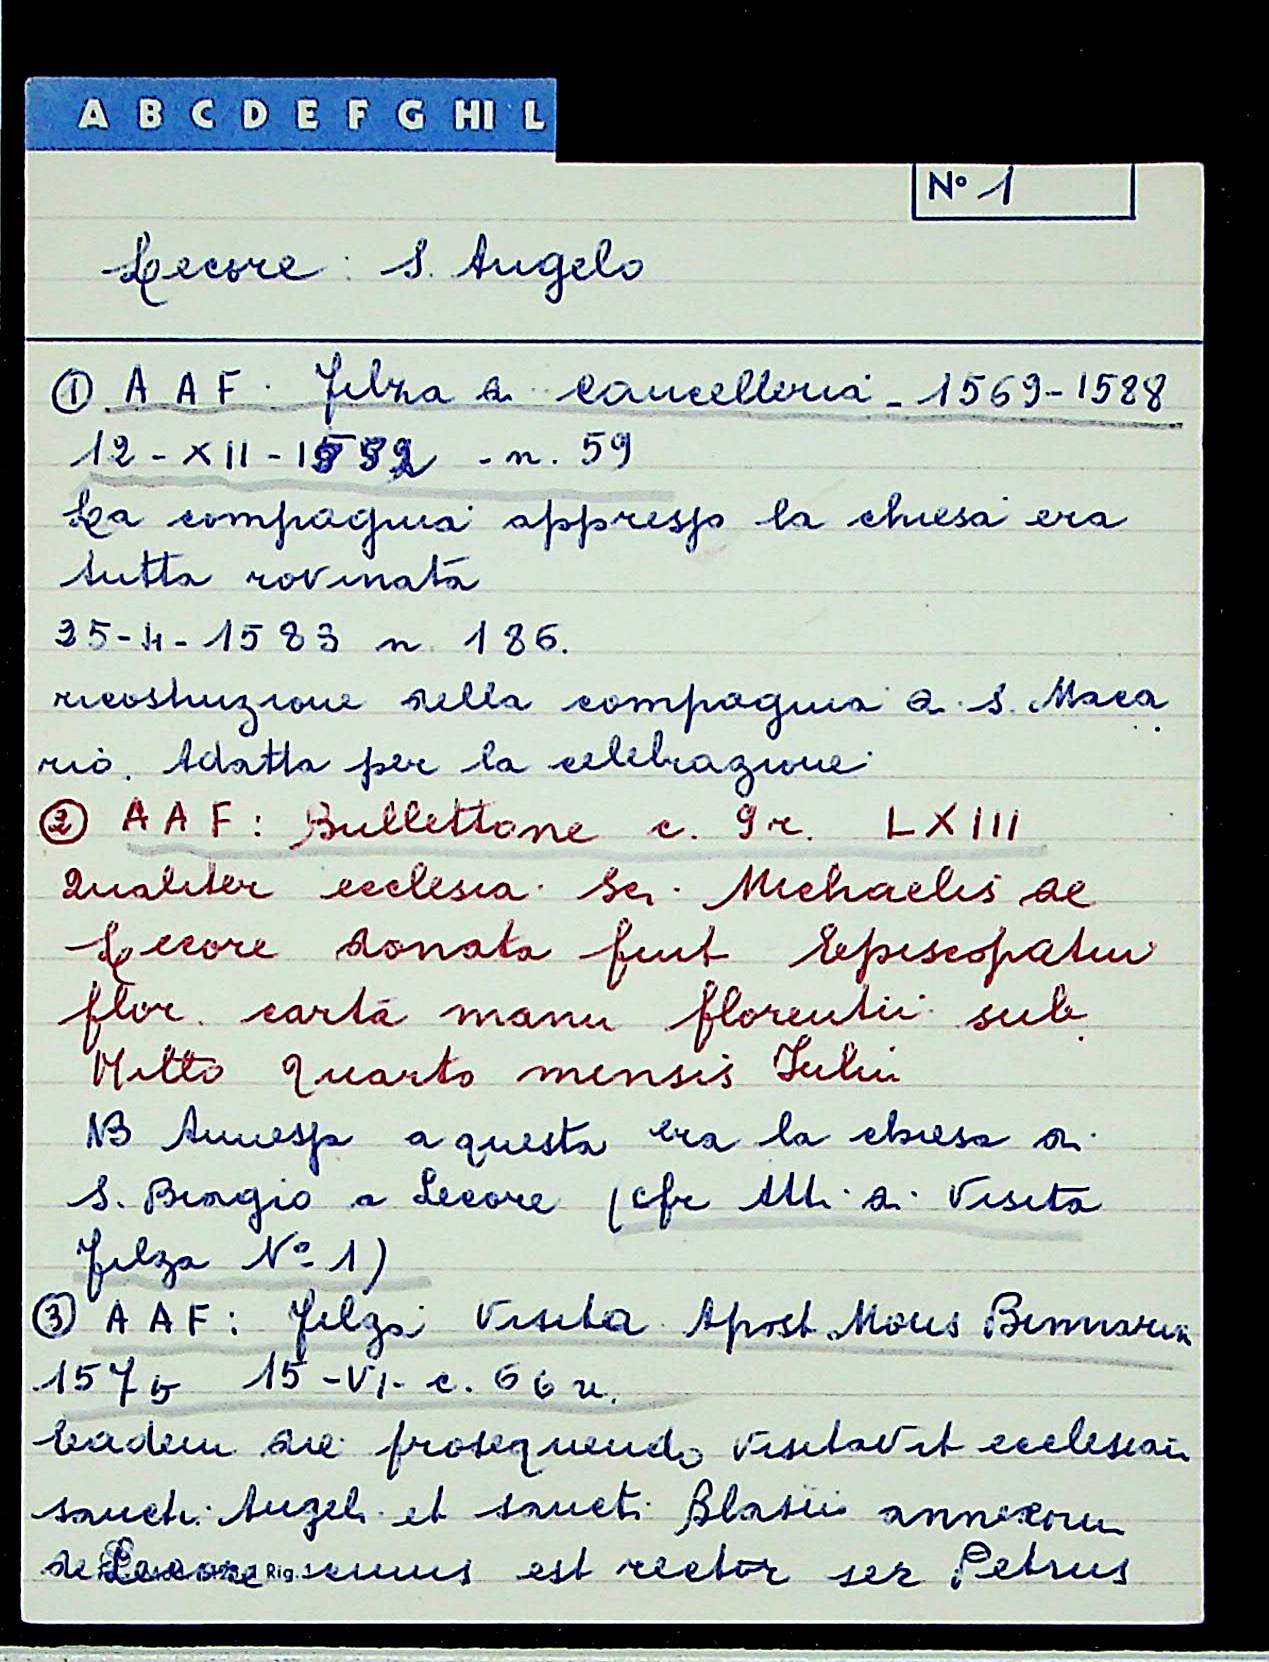 A B C D E F G HI L
N° 1
Lecore: S. Angelo
① A A F. Filza di Cancelleria - 1569-1588
12-XII-1582 - n. 59
La compagnia appresso la chiesa era
tutta rovinata
25-4-1583 n. 186.
ricostruzione della compagnia di S. Maca
rio. Adatta per la celebrazione
② A A F: Bullettone c. 9r. LXIII
Qualiter ecclesia Sci. Michaelis de
Lecore donata fuit Episcopatui
flor. carta manu florentii sub
Millo quarto mensis Iulii
NB Annessa a questa era la chiesa di
S. Biagio a Lecore (cfr Atti di Visita
filza N° 1)
③ A A F: filza Visita Apost. Mons Binnarin
1575 15-VI- c. 66 r.
Eadem die prosequendo visitavit ecclesiam
sancti Angeli et sancti Blasii annexam
de Lecore Rig. cuius est rector ser Petrus